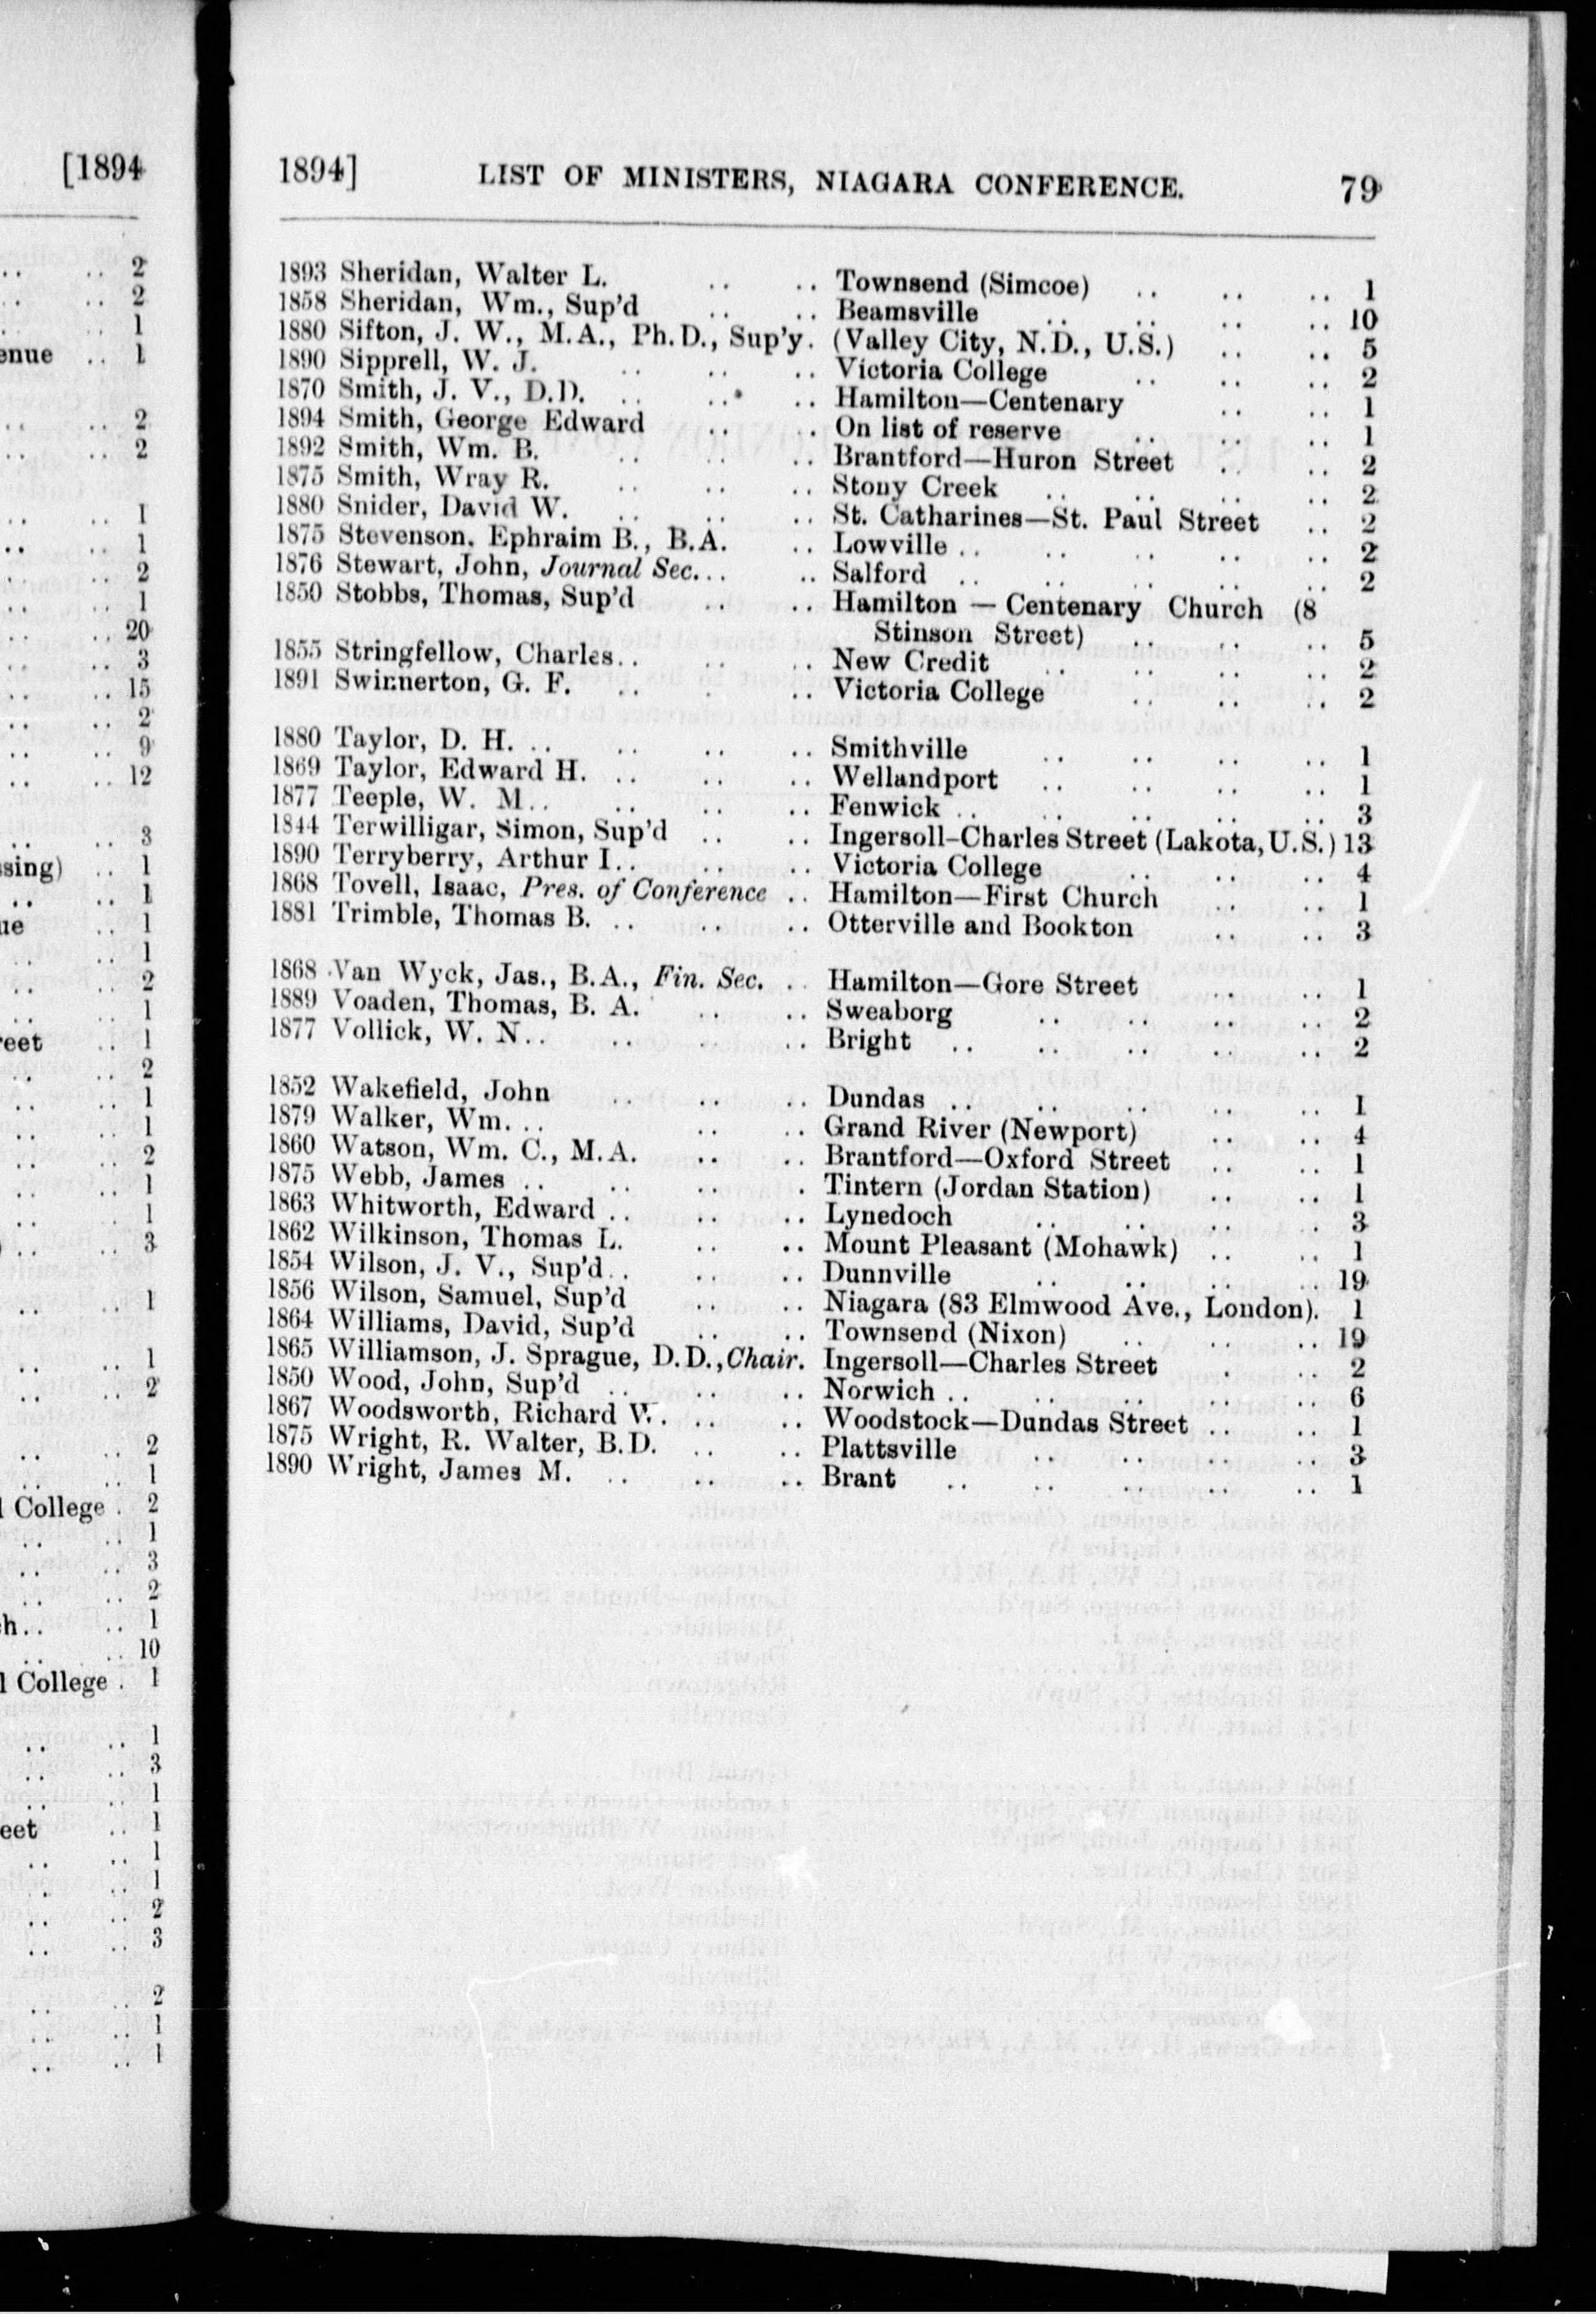 1894] LIST OF MINISTERS, NIAGARA CONFERENCE. 79
1893 Sheridan, Walter L. .. .. Townsend (Simcoe) .. .. .. 1
1858 Sheridan, Wm., Sup'd .. .. Beamsville .. .. .. .. 10
1880 Sifton, J. W., M.A., Ph.D., Sup'y. (Valley City, N.D., U.S.) .. .. 5
1890 Sipprell, W. J. .. .. .. Victoria College .. .. .. 2
1870 Smith, J. V., D.D. .. .. .. Hamilton—Centenary .. .. 1
1894 Smith, George Edward .. .. On list of reserve .. .. .. 1
1892 Smith, Wm. B. .. .. .. Brantford—Huron Street .. .. 2
1875 Smith, Wray R. .. .. .. Stony Creek .. .. .. .. 2
1880 Snider, David W. .. .. .. St. Catharines—St. Paul Street .. 2
1875 Stevenson, Ephraim B., B.A. .. Lowville .. .. .. .. .. 2
1876 Stewart, John, Journal Sec... .. Salford .. .. .. .. .. 2
1850 Stobbs, Thomas, Sup'd .. .. Hamilton — Centenary Church (8
Stinson Street) .. .. .. 5
1855 Stringfellow, Charles.. .. .. New Credit .. .. .. .. 2
1891 Swinnerton, G. F. .. .. .. Victoria College .. .. .. 2
1880 Taylor, D. H. .. .. .. .. Smithville .. .. .. .. 1
1869 Taylor, Edward H. .. .. .. Wellandport .. .. .. .. 1
1877 Teeple, W. M.. .. .. .. Fenwick .. .. .. .. .. 3
1844 Terwilligar, Simon, Sup'd .. .. Ingersoll-Charles Street (Lakota, U.S.) 13
1890 Terryberry, Arthur I.. .. .. Victoria College .. .. .. 4
1868 Tovell, Isaac, Pres. of Conference .. Hamilton—First Church .. .. 1
1881 Trimble, Thomas B. .. .. .. Otterville and Bookton .. .. 3
1868 Van Wyck, Jas., B.A., Fin. Sec. . Hamilton—Gore Street .. .. 1
1889 Voaden, Thomas, B. A. .. .. Sweaborg .. .. .. .. 2
1877 Vollick, W. N.. .. .. .. Bright .. .. .. .. .. 2
1852 Wakefield, John .. .. .. Dundas .. .. .. .. .. 1
1879 Walker, Wm. .. .. .. Grand River (Newport) .. .. 4
1860 Watson, Wm. C., M.A. .. .. Brantford—Oxford Street .. .. 1
1875 Webb, James .. .. .. . Tintern (Jordan Station) .. .. 1
1863 Whitworth, Edward .. .. .. Lynedoch .. .. .. .. 3
1862 Wilkinson, Thomas L. .. .. Mount Pleasant (Mohawk) .. .. 1
1854 Wilson, J. V., Sup'd.. .. .. Dunnville .. .. .. .. 19
1856 Wilson, Samuel, Sup'd .. .. Niagara (83 Elmwood Ave., London). 1
1864 Williams, David, Sup'd .. .. Townsend (Nixon) .. .. .. 19
1865 Williamson, J. Sprague, D.D., Chair. Ingersoll—Charles Street . .. 2
1850 Wood, John, Sup'd .. .. .. Norwich .. .. .. .. .. 6
1867 Woodsworth, Richard W. .. .. Woodstock—Dundas Street .. .. 1
1875 Wright, R. Walter, B.D. .. .. Plattsville .. .. .. .. 3
1890 Wright, James M. .. .. .. Brant .. .. .. .. .. 1